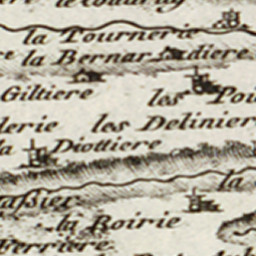 la Tournerie
la Bernardiere
Giltiere
les Poi
lerie les Delinier
la Diottiere
la
la Roirie
Ferriere